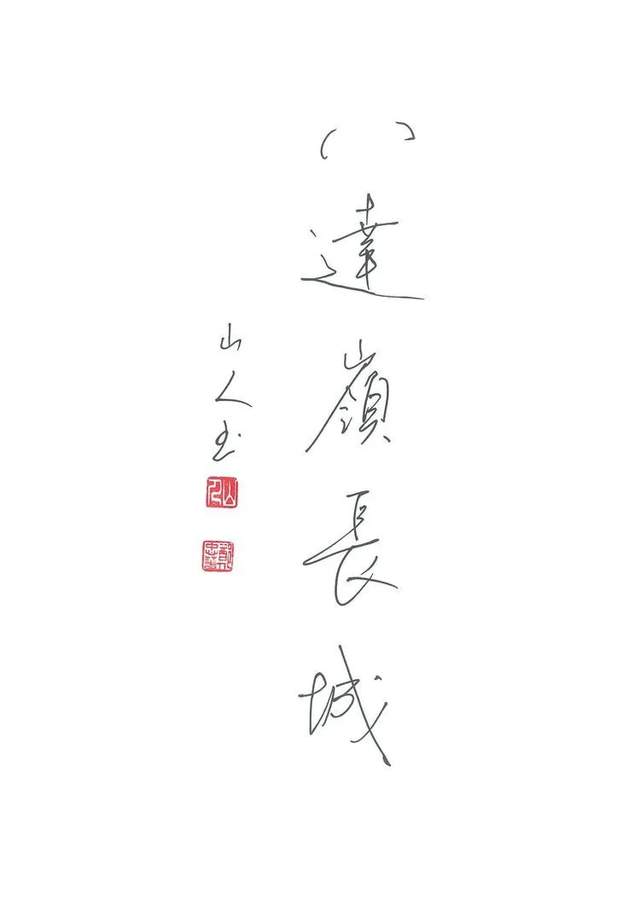 八達嶺長城
山人书
山人